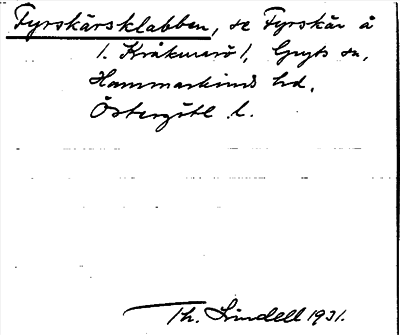 Fyrskärsklabben, se Fyrskär å
1. Kråkmarö 1, Gryts sn,
Hammarkinds hd,
Östergötl. l.
Th. Lindell 1931.